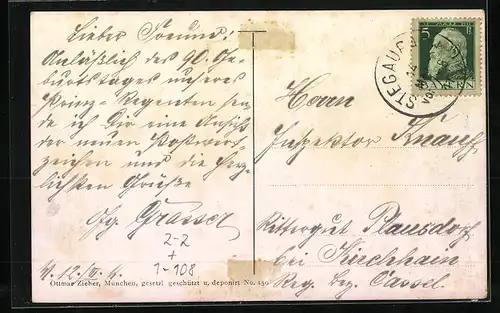 Lieber Freund!
Anläßlich des 90. Ge-
burtstages unseres
Prinz-Regenten sen-
de ich Dir eine Ansicht
der neuen Postwert-
zeichen und die herz-
lichsten Grüße
Grosser
2-2
+
1-108
Ottmar Zieher, München, gesetzl. geschützt u. deponirt No. 150
5
BAYERN
STEGAU
Herrn
Inspektor Knauf
Rittergut Plausdorf
bei Kirchhain
Reg. bez. Cassel.